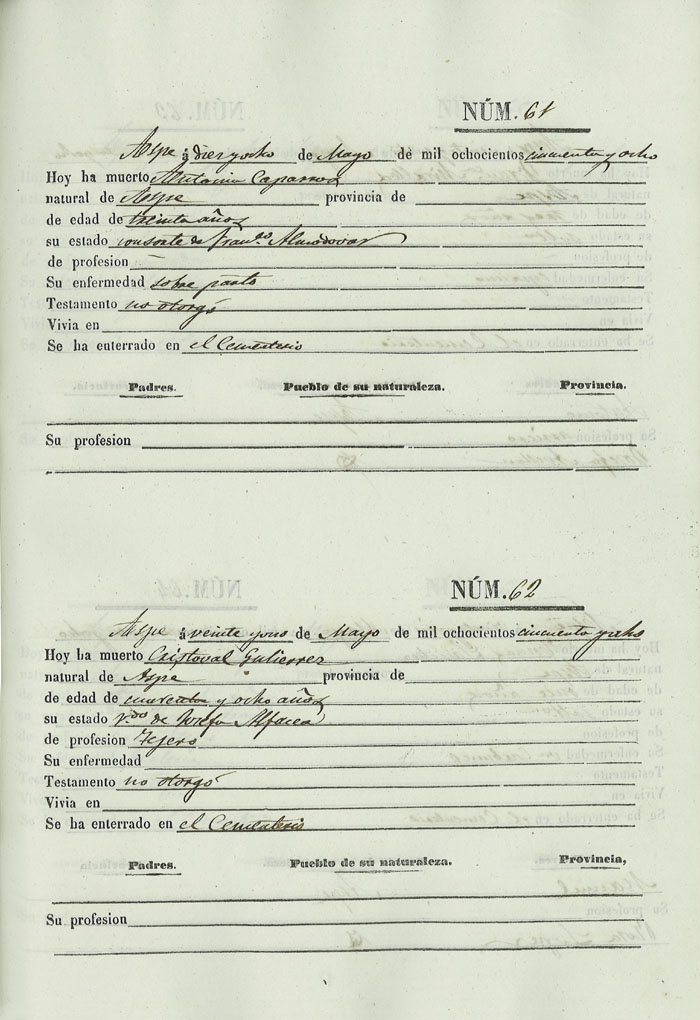 NÚM. 61
Aspe á diez y ocho de Mayo de mil ochocientos cincuenta y ocho
Hoy ha muerto Antonia Caparros
natural de Aspe provincia de
de edad de treinta años
su estado consorte de Fran.co Almodovar
de profesion
Su enfermedad sobre parto
Testamento no otorgó
Vivia en
Se ha enterrado en el Cementerio
Padres. Pueblo de su naturaleza. Provincia.
Su profesion
NÚM. 62
Aspe á veinte y uno de Mayo de mil ochocientos cincuenta y ocho
Hoy ha muerto Cristoval Gutierrez
natural de Aspe provincia de
de edad de cuarenta y ocho años
su estado v.do de Josefa
de profesion Tejero
Su enfermedad
Testamento no otorgó
Vivia en
Se ha enterrado en el Cementerio
Padres. Pueblo de su naturaleza. Provincia,
Su profesion